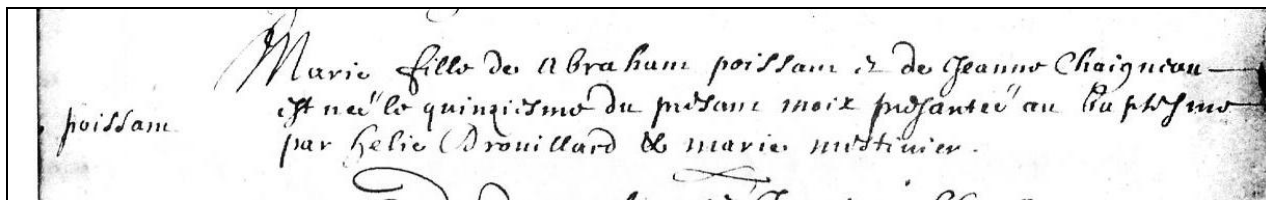 Marie fille de Abraham poissam & de Jeanne Chaigneau
poissam
est neé le quinziesme du presant moix presanteé au baptesme
par helie Drouillard & marie mestivier.